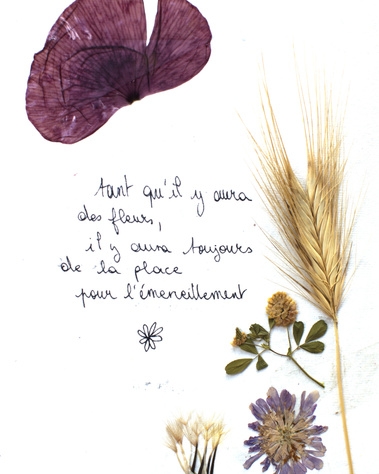 tant qu'il y aura
des fleurs,
il y aura toujours
de la place
pour l'émerveillement